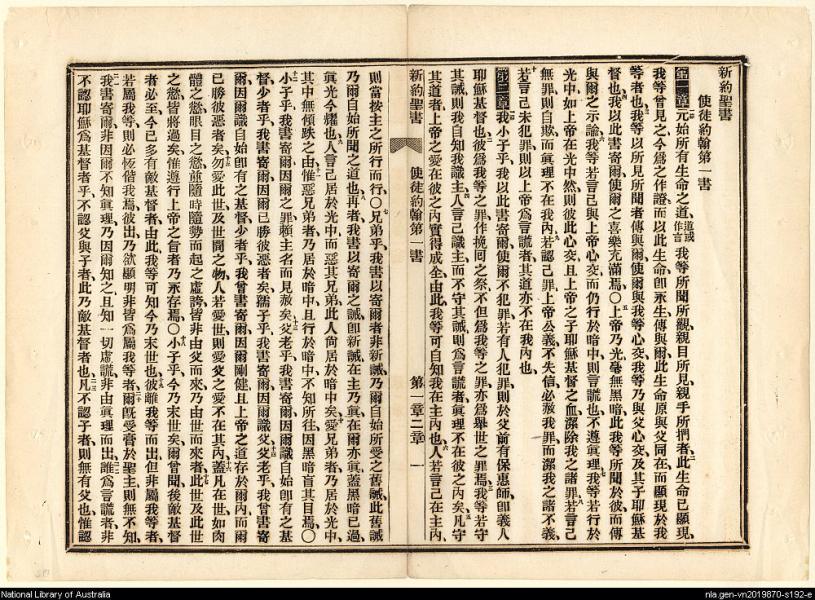 新約聖書
使徒約翰第一書
第一章元始所有生命之道、道或作言我等所聞所觀、親目所見、親手所捫者、此生命已顯現、
我等曾見之、今爲之作證、而以此生命、卽永生、傳與爾、此生命原與父同在、而顯現於我
等者也、我等以所見所聞者傳與爾、使爾與我等心交、我等乃與父心交、及其子耶穌基
督也、我以此書寄爾、使爾之喜樂充滿焉、〇上帝乃光、毫無黑暗、此我等所聞於彼、而傳
與爾之示諭、我等若言己與上帝心交、而仍行於暗中、則言謊也、不遵眞理、我等若行於
光中、如上帝在光中然、則彼此心交、且上帝之子耶穌基督之血、潔除我之諸罪、若言己
無罪、則自欺、而眞理不在我內、若認己罪、上帝公義、不失信、必赦我罪、而潔我之諸不義、
若言己未犯罪、則以上帝爲言謊者、其道亦不在我內也、
第二章我小子乎、我以此書寄爾、使爾不犯罪、若有人犯罪、則於父前有保惠師、卽義人
耶穌基督也、彼爲我等之罪作挽回之祭、不但爲我等之罪、亦爲舉世之罪焉、我等若守
其誡、則我自知我識主、人言己識主、而不守其誡、則爲言謊者、眞理不在彼之內矣、凡守
其道者、上帝之愛在彼之內實得成全、由此、我等可自知我在主內也、人若言己在主內、
新約聖書 使徒約翰第一書 第一章二章 一
則當按主之所行而行、〇兄弟乎、我書以寄爾者、非新誡、乃爾自始所受之舊誡、此舊誡
乃爾自始所聞之道也、再者、我書以寄爾之誡、卽新誡、在主乃眞、在爾亦眞、蓋黑暗已過、
眞光今耀也、人言己居於光中、而惡其兄弟、此人尙居於暗中矣、愛兄弟者、乃居於光中、
其中無傾跌之由、惟惡兄弟者、乃居於暗中、且行於暗中、不知所往、因黑暗盲其目焉、〇
小子乎、我書寄爾、因爾之罪賴主名而見赦矣、父老乎、我書寄爾、因爾識自始卽有之基
督、少者乎、我書寄爾、因爾已勝彼惡者矣、孺子乎、我書寄爾、因爾識父、父老乎、我曾書寄
爾、因爾識自始卽有之基督、少者乎、我曾書寄爾、因爾剛健、且上帝之道存於爾內、而爾
已勝彼惡者矣、勿愛此世及世間之物、人若愛世、則愛父之愛不在其內、蓋凡在世、如肉
體之慾、眼目之慾、並隨時隨勢而起之虛誇、皆非由父而來、乃由世而來者、此世及此世
之慾皆將過矣、惟遵行上帝之旨者、乃永存焉、〇小子乎、今乃末世矣、爾曾聞後敵基督
者必至、今已多有敵基督者、由此、我等可知今乃末世也、彼雖我等而出、但非屬我等者、
若屬我等、則必恆偕我焉、彼出、乃欲顯明非皆爲屬我等者、爾旣受膏於聖主、則無不知、
我書寄爾、非因爾不知眞理、乃因爾知之、且知一切虛謊、非由眞理而出、誰爲言謊者、非
不認耶穌爲基督者乎、不認父與子者、此乃敵基督者也、凡不認子者、則無有父也、惟認
National Library of Australia
nla.gen-vn2019870-s192-e